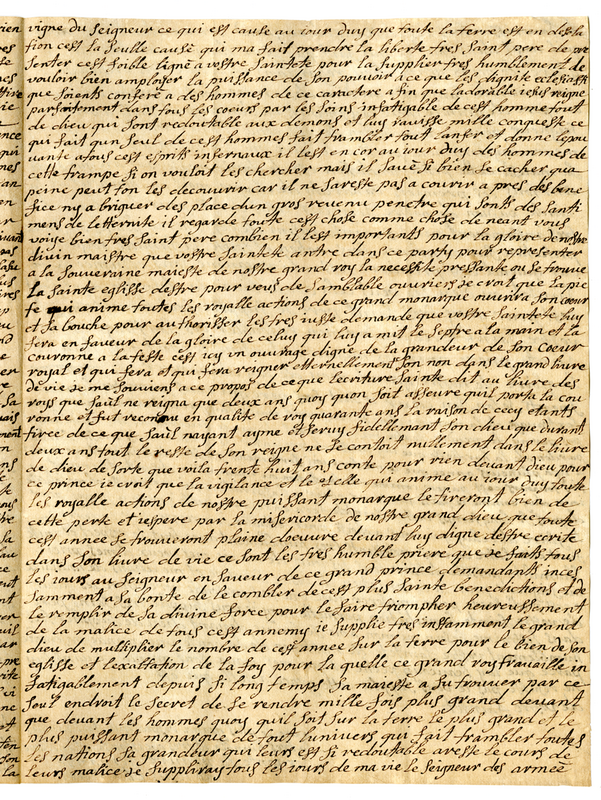 vigne du seigneur ce qui est cause au iour duy que toute la terre est en desola
sion cest la seulle cause qui ma fait prendre la liberte tres saint pere de pre
senter cest foible ligne a vostre saintete pour la supplier tres humblement de
vouloir bien amployer la puissance de son pouvoir a ce que les dignite eclesiasti
que soients confere a des hommes de ce caractere a fin que ladorable iesus reigne
parfaitement dans tous les coeurs par les soins infatigable de cest homme tout
de dieu qui sont redoutable aux demons et luy ravisse mille conqueste ce
qui fait qun seul de cest hommes fait trambler tout lanfer et donne lepou
uante a tous cest esprits infernaux il lest en cor au iour duy des hommes de
cette trampe si on vouloit les chercher mais il savē si bien se cacher qua
peine peut ton les decouvrir car il ne sareste pas a courir a pres des bene
fice ny a briguer des place dun gros revenu pendre qui sonts des santi
mens de letternite il regarde toute cest chose comme chose de neant vous
voiye bien tres saint pere combien il lest importants pour la gloire de nostre
divin maistre que vostre saintete antre dans ce party pour representer
a la souveraine maieste de nostre grand roy la necesite pressante ou se trouve
la sainte eglise destre pour veus de samblable ouvriers ie croit que la pie
te qui anime toutes les royalle actions de ce grand monarque ouvrira son coeur
et sa bouche pour authorisser les tres iuste demande que vostre saintete luy
fera en faveur de la gloire de celuy qui luy a mit le septre a la main et la
couronne a la teste cest icy un ouvrage digne de la grandeur de son coeur
royal et qui fera et qui fera reigner etternellement son non dans le grand livre
de vie ie me souviens a ce propos de ce que lecriture sainte dit au livre des
roys que saül ne reigna que deux ans quoy quon soit asseure quil porta la cou
ronne et fut reconnu en qualite de roy quarante ans la raison de cecy etants
tiree de ce que saül nayant ayme et servy fidellemant son dieu que durant
deux ans tout le reste de son reigne ne se contoit nullement dans le livre
de dieu de sorte que voila trente huit ans conte pour rien devant dieu pour
ce prince ie croit que la vigilance et le zelle qui anime au iour duy toute
les royalle actions de nostre puissant monarque le tireront bien de
cette perte et iespere par la misericorde de nostre grand dieu que toute
cest annee se trouveront plaine doeuvre devant luy digne destre ecrite
dans son livre de vie ce sont les tres humble priere que ie faits tous
les iours au seigneur en faveur de ce grand prince demandants inces
samment a sa bonte de le combler de cest plus sainte benedictions et de
le remplir de sa divine force pour le faire triompher heureussement
de la malice de tous cest annemy ie supplie tres instamment le grand
dieu de multiplier le nombre de cest annee sur la terre pour le bien de son
eglise et lexaltation de la foy pour la quelle ce grand roy travaille in
fatigablement depuis si long temps sa maieste a su trouver par ce
seul endroit le secret de se rendre mille fois plus grand devant
que devant les hommes quoy quil soit sur la terre le plus grand et le
plus puissant monarque de tout lunivers qui fait trambler toutes
les nations sa grandeur qui leurs est si redoutable areste le cours de
leurs malice ie suppliray tous les iours de ma vie le seigneur des armée